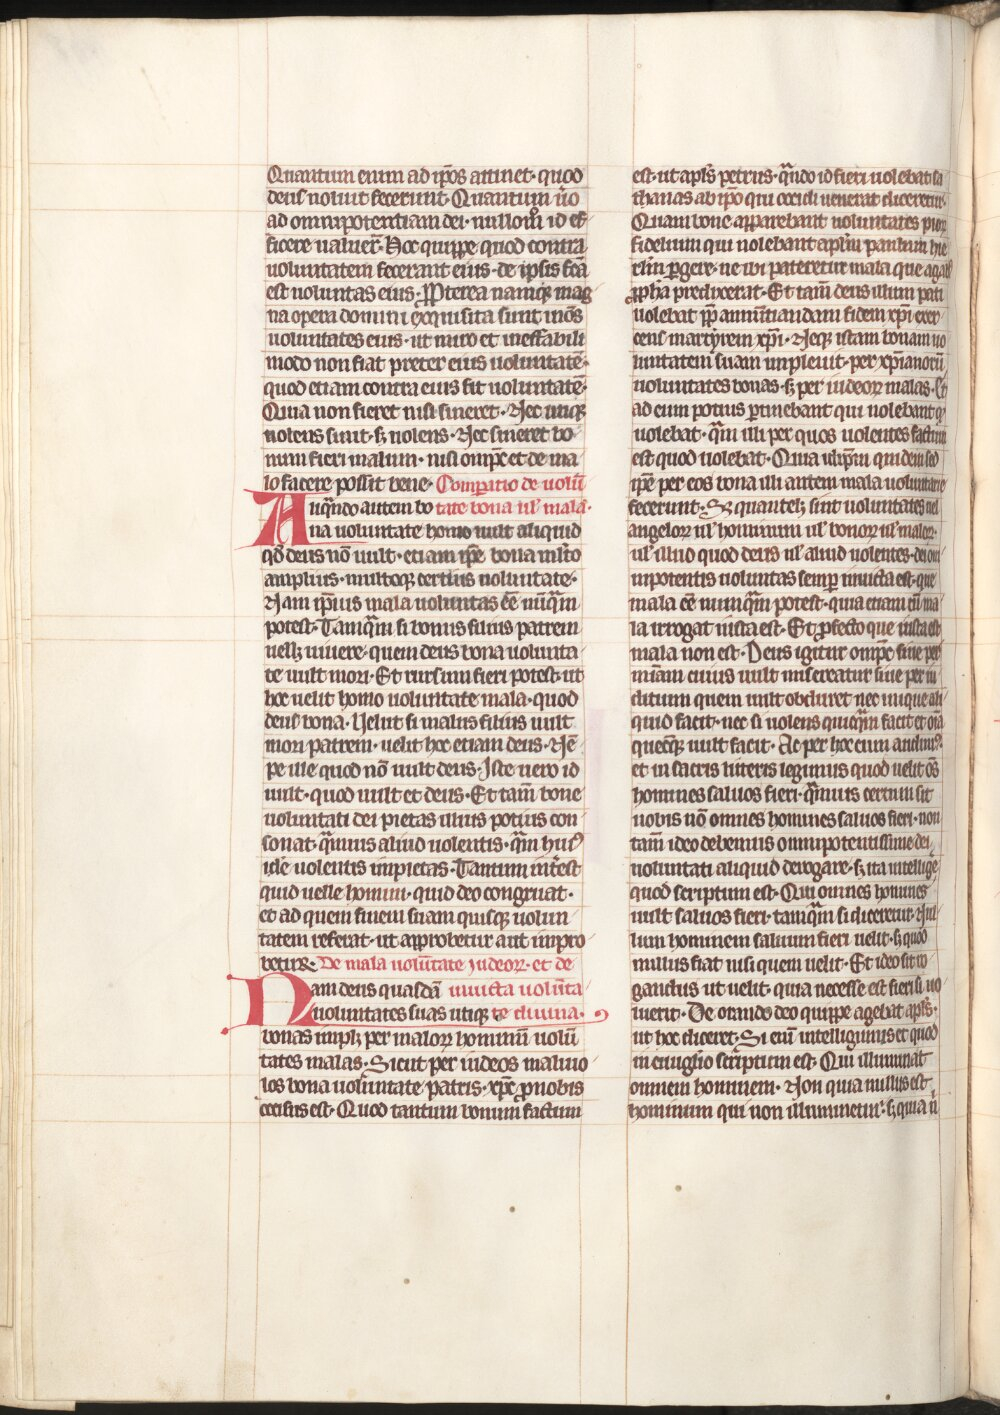 Quantum enim ad ip̄os attinet· quod
deus noluit fecerunt· Quantum ūo
ad omnipotentiam dei· nullom̊ id ef
ficere ualuer̄t· Hoc quippe quod contra
uoluntatem fecerant eius· de ipsis fc̄a
est uoluntas eius· Ꝓpterea namq; mag
na opera domini exquisita sunt in om̄s
uoluntates eius· ut miro et ineffabili
modo non fiat preter eius uoluntatē·
quod etiam contra eius fit uoluntatē·
Quia non fieret nisi sineret· Nec utiq;
nolens sinit· s; uolens· Nec sineret bo
num fieri malum· nisi omīps et de ma
lo facere possit bene· Comꝑatio de uolū
Aliqn̄do autem bo tate bona uł mala·
na uoluntate homo uult aliquid
qd̄ deus nō uult· etiam ip̄e bona mlto
amplius· multoq; certius uoluntate·
Nam ip̄ius mala uoluntas ēē nūqᵃm
potest· Tamqᵃm si bonus filius patrem
uell; uiuere· quem deus bona uolunta
te uult mori· Et rursum fieri potest· ut
hoc uelit homo uoluntate mala· quod
deus bona· Uelut si malus filius uult
mori patrem· uelit hoc etiam deus· Nē
pe ille quod nō uult deus· Iste uero id
uult· quod uult et deus· Et tam̄ bone
uoluntati dei pietas illius potius con
sonat· qᵃmuis aliud uolentis· qᵃm huiꝰ
idē uolentis impietas· Tantum int̄est
quid uelle homini· quid deo congruat·
et ad quem finem suam quisq; uolun
tatem referat· ut approbetur aut impro
betur· De mala uolūtate iudeoꝝ· et de
Nam deus quasdā inuicta uolūta
uoluntates suas utiq; te diuina·
bonas impl; per maloꝝ hominū uolū
tates malas· Sicut per iudeos maliuo
los bona uoluntate patris· xp̄c ꝓ nobis
occisus est· Quod tantum bonum factum
est· ut apl̄s petrus· qᵃndo id fieri nolebat sa
thanas ab ip̄o qui occidi uenerat diceretur·
Quam bone apparebant uoluntates pioꝝ
fidelium qui nolebant apl̄m paulum hie
rl̄m ꝑgere· ne ibi pateretur mala que agabꝰ
ꝓph̄a predixerat· Et tam̄ deus illum pati
uolebat ꝓp annūtiandam fidem xp̄i exer
cens martyrem xp̄i· Neq; istam bonam uo
luntatem suam impleuit· per xp̄ianorū
uoluntates bonas· s; per iudeoꝝ malas· Et
ad eum potius ꝑtinebant qui nolebant qᵈ
uolebat· qᵃm illi per quos uolentes factum
est quod uolebat· Quia id ip̄m quidem sed
ip̄e per eos bona illi autem mala uoluntate
fecerunt· S; quantel; sint uoluntates uel
angeloꝝ uł hominum uł bonoꝝ uł maloꝝ·
uł illud quod deus uł aliud uolentes· dei om
nipotentis uoluntas semꝑ inuicta est· que
mala ēē nunqᵃm potest· quia etiam cū ma
la irrogat iusta est· Et ꝓfecto que iusta est
mala non est· Deus igitur omīps siue per
mīam cuius uult misereatur siue per iu
dicium quem uult obduret nec inique ali
quid facit· nec si uolens quicqᵃm facit et oīa
quecūq; uult facit· Ac per hoc cum audimꝰ·
et in sacris litteris legimus quod uelit om̄s
homines saluos fieri· qᵃmuis certum sit
nobis nō omnes homines saluos fieri· non
tam̄ ideo debemus omnipotentissime dei
uoluntati aliquid derogare· s; ita intellige
quod scriptum est· Qui omnes homines
uult saluos fieri· tamqᵃm si diceretur· Nul
lum hominem saluum fieri uelit· s; quod
nullus fiat nisi quem uelit· Et ideo sit ro
gandus ut uelit· quia necesse est fieri si uo
luerit· De orando deo quippe agebat apl̄s·
ut hoc diceret· Si enī intelligimus et quod
in euuglio scriptum est· Qui illuminat
omnem hominem· Non quia nullus est
hominum qui non illuminetur· s; quia n̄